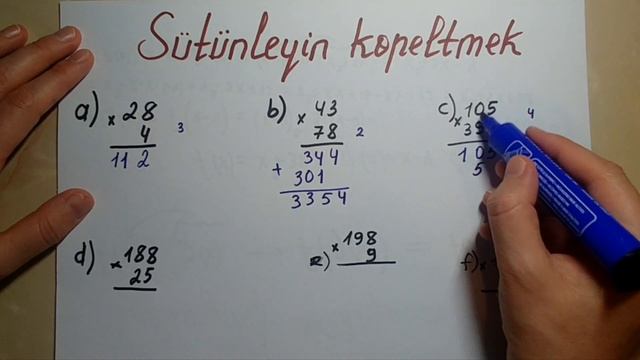 Sütünleyin kopeltmek
a) × 28
4
3
112
b) × 43
78
2
344
+ 301
3354
c) × 105
3
4
10
5
d) × 188
25
e) × 198
9
f) ×